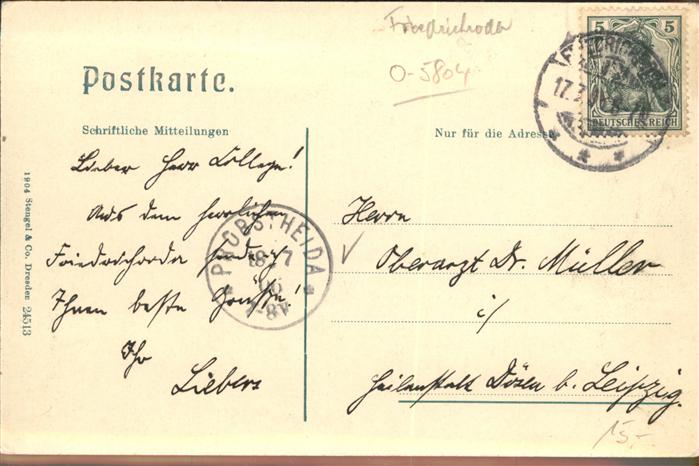 Friedrichroda
0-5804
5 5
DEUTSCHES REICH
17.7.
Postkarte.
Schriftliche Mitteilungen
Nur für die Adresse
Lieber Herr College!
Aus dem herrlichen
Friedrichroda sendet
Ihnen beste Grüsse!
Ihr
Liebers
PROBSTHEIDA
18 7
06
7-8V
Herrn
Oberarzt Dr. Müller
i/
Heilanstalt Dösen b. Leipzig.
15.-
1904 Stengel & Co. Dresden 24513